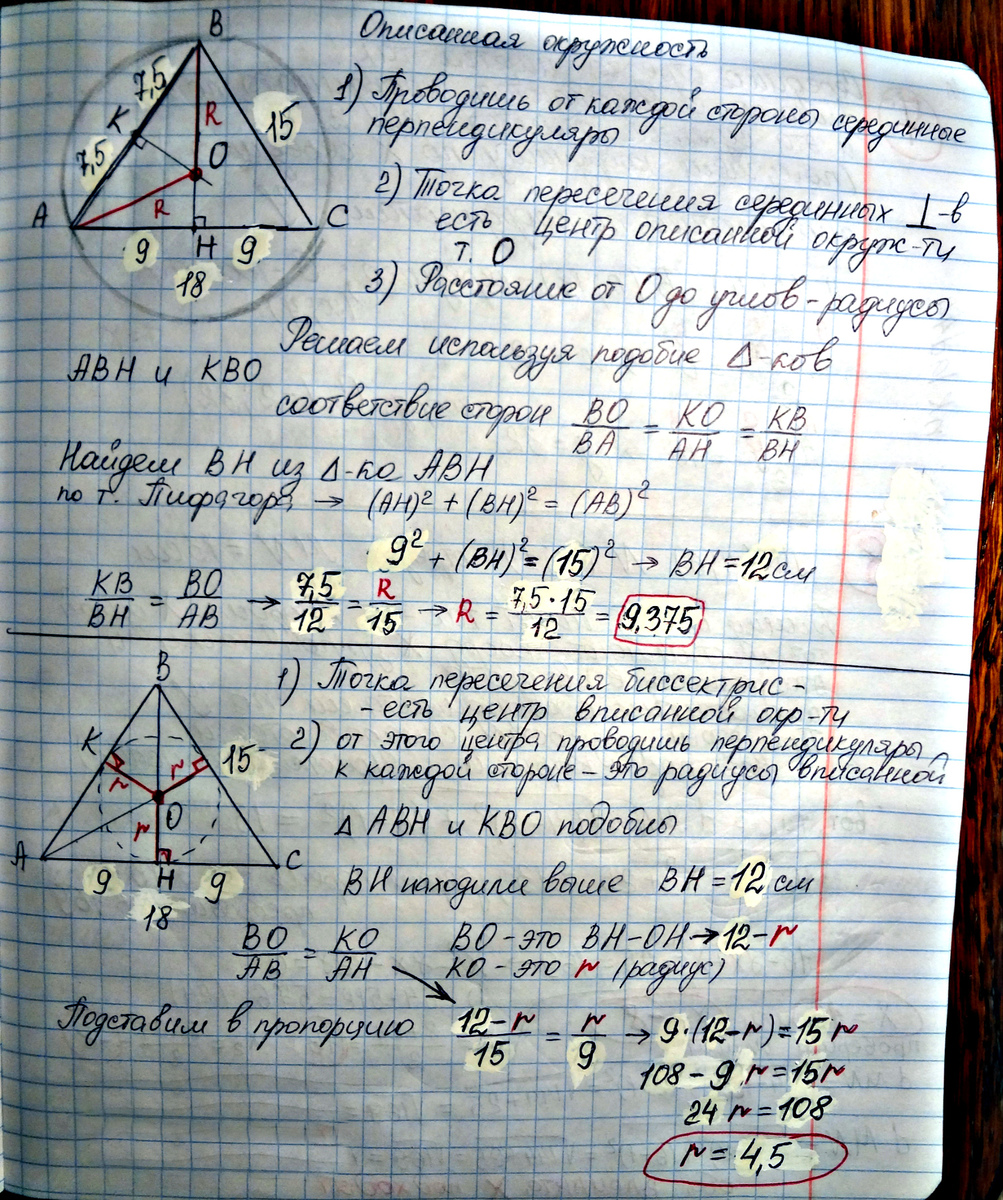 Описанная окружность
B
7,5
K
R
15
7,5
O
R
A
C
9 H 9
18
1) Проводишь от каждой стороны серединные
перпендикуляры
2) Точка пересечения серединных ⊥-в
есть центр описанной окруж-ти
т. O
3) Расстояние от O до углов - радиусы
Решаем используя подобие Δ-ков
ABH и KBO
соответствие сторон BO/BA = KO/AH = KB/BH
Найдем BH из Δ-ка ABH
по т. Пифагора → (AH)² + (BH)² = (AB)²
9² + (BH)² = (15)² → BH = 12 см
KB/BH = BO/AB → 7,5/12 = R/15 → R = 7,5·15/12 = 9,375
B
K
r
r
15
O
r
A
C
9 H 9
18
1) Точка пересечения биссектрис -
- есть центр вписанной окр-ти
2) от этого центра проводишь перпендикуляры
к каждой стороне - это радиусы вписанной
Δ ABH и KBO подобны
BH находили выше BH = 12 см
BO/AB = KO/AH BO - это BH - OH → 12 - r
KO - это r (радиус)
Подставим в пропорцию 12 - r/15 = r/9 → 9·(12 - r) = 15 r
108 - 9 r = 15 r
24 r = 108
r = 4,5